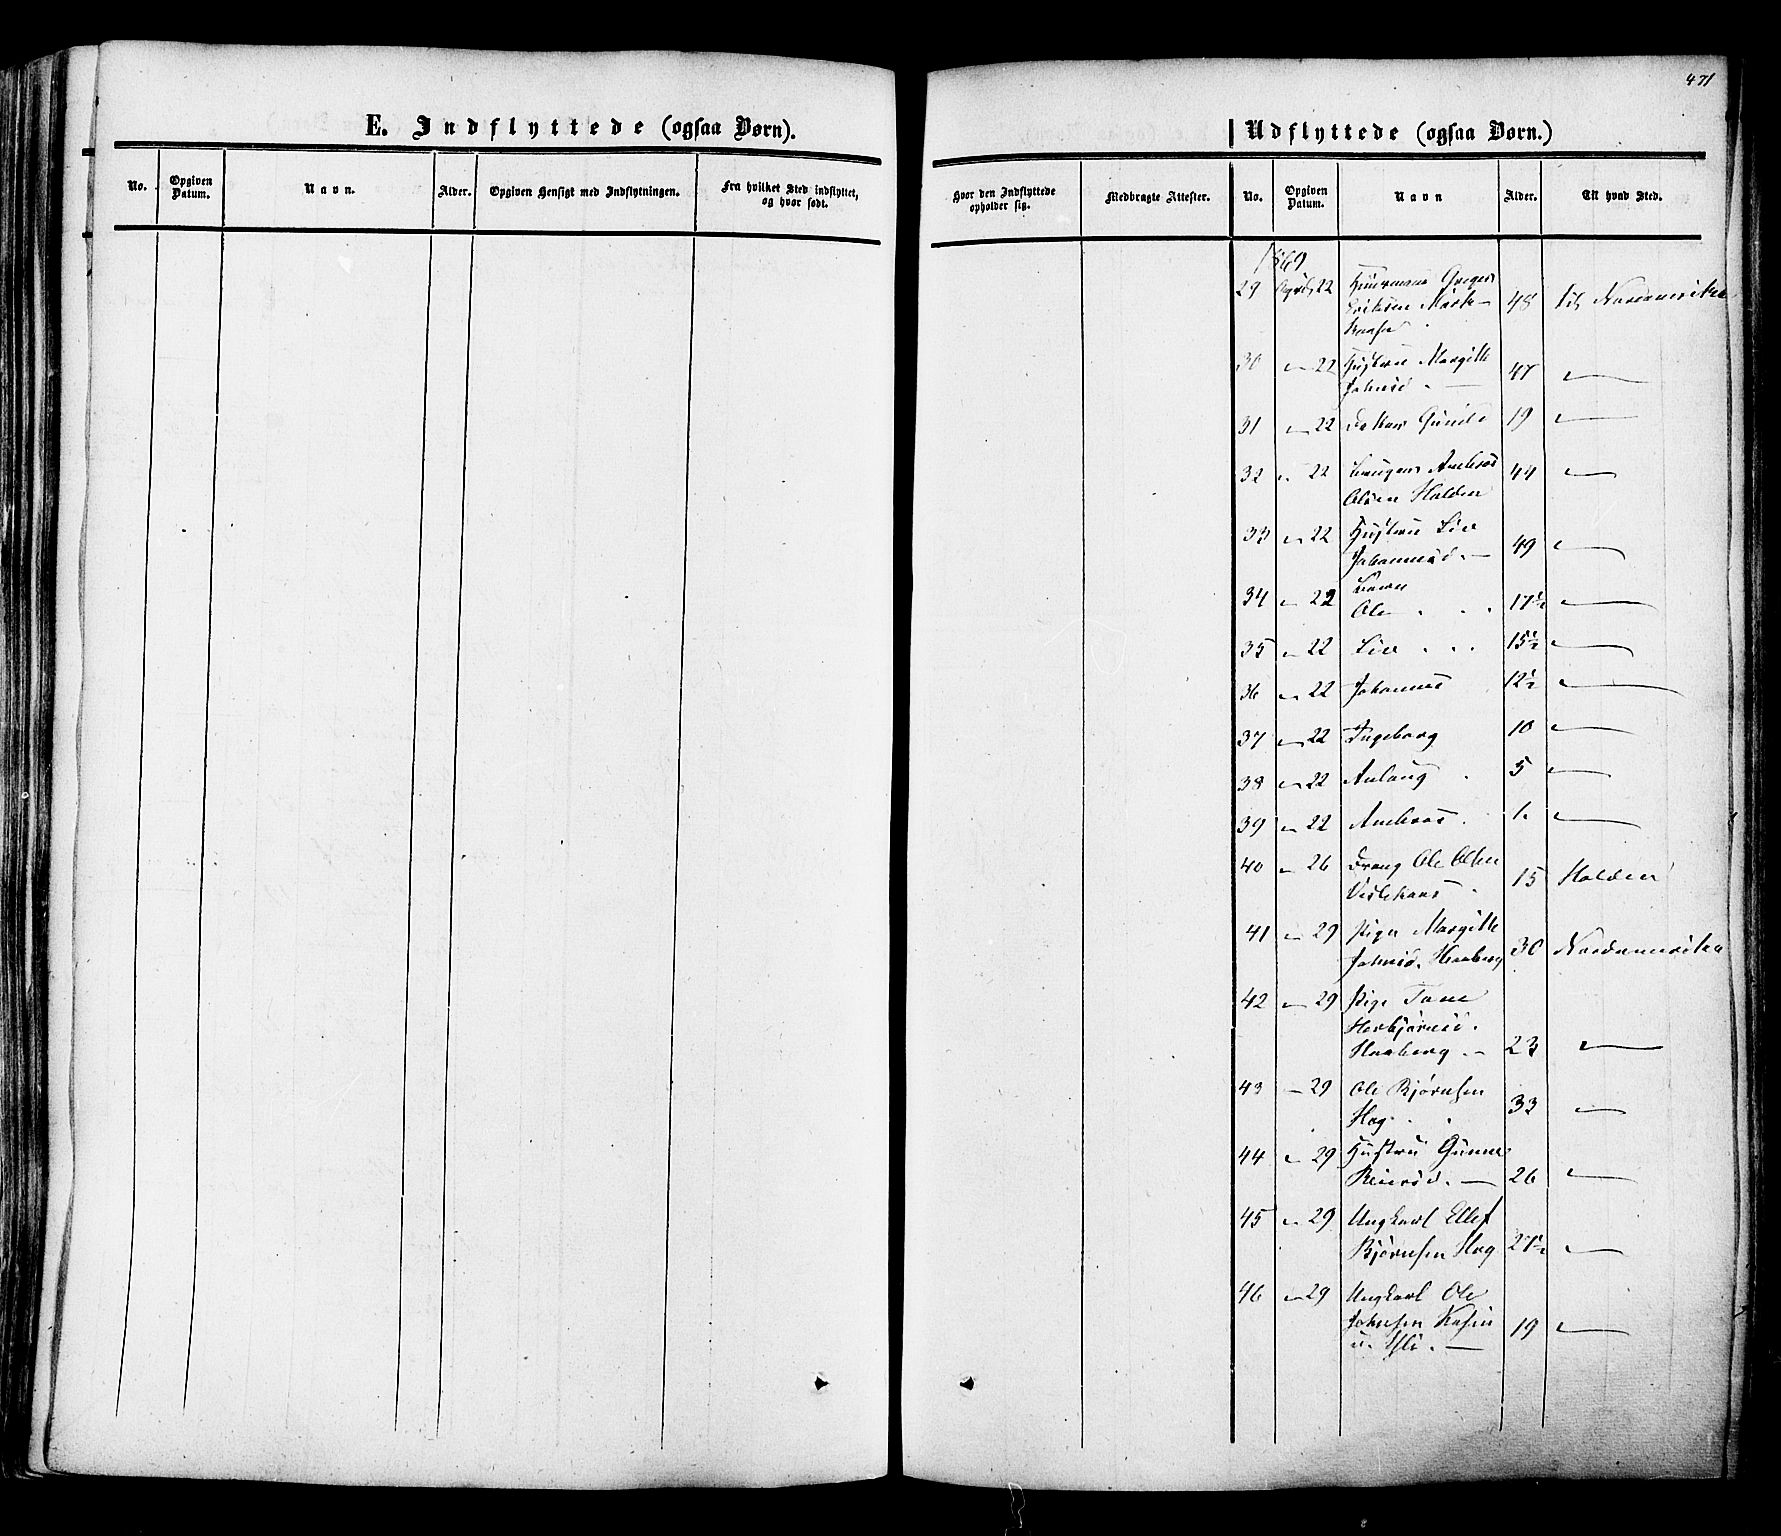 471
E. Indflyttede (ogsaa Børn).
No.
Opgiven Datum.
Navn.
Alder.
Opgiven Hensigt med Indflytningen.
Fra hvilket Sted indflyttet, og hvor født.
Hvor den Indflyttede opholder sig.
Medbragte Attester.
Udflyttede (ogsaa Børn.)
No.
Opgiven Datum.
Navn
Alder.
Til hvad Sted.
1869
29 April 22 Gregers
Eriksen 48 til Nordamerika
30 " 22 Hustru Margith
Johnsd. — 47 "
31 " 22 Datter Gunild 19 "
32 " 22 Ambros
Olsen Halden 44 "
33 " 22 Hustru Liv
Johannesd. — 49 "
34 " 22 Børn
Ole 17½ "
35 " 22 Liv 15½ "
36 " 22 Johannes 12½ "
37 " 22 Ingeborg 10 "
38 " 22 Aslaug 5 "
39 " 22 Ambros 1 "
40 " 26 Dreng Ole Olsen
15 Holden
41 " 29 Pige Margith
Johnsd. Haaberg 30 Nordamerika
42 " 29 Pige Tone
Herbjørnsd.
Haaberg — 23 "
43 — 29 Ole Bjørnsen
Hag 33 "
44 " 29 Hustru Gunne
— 26 "
45 " 29 Ungkarl Ellef
Bjørnsen Hag 27½ "
46 " 29 Ungkarl Ole
Johnsen
19 "